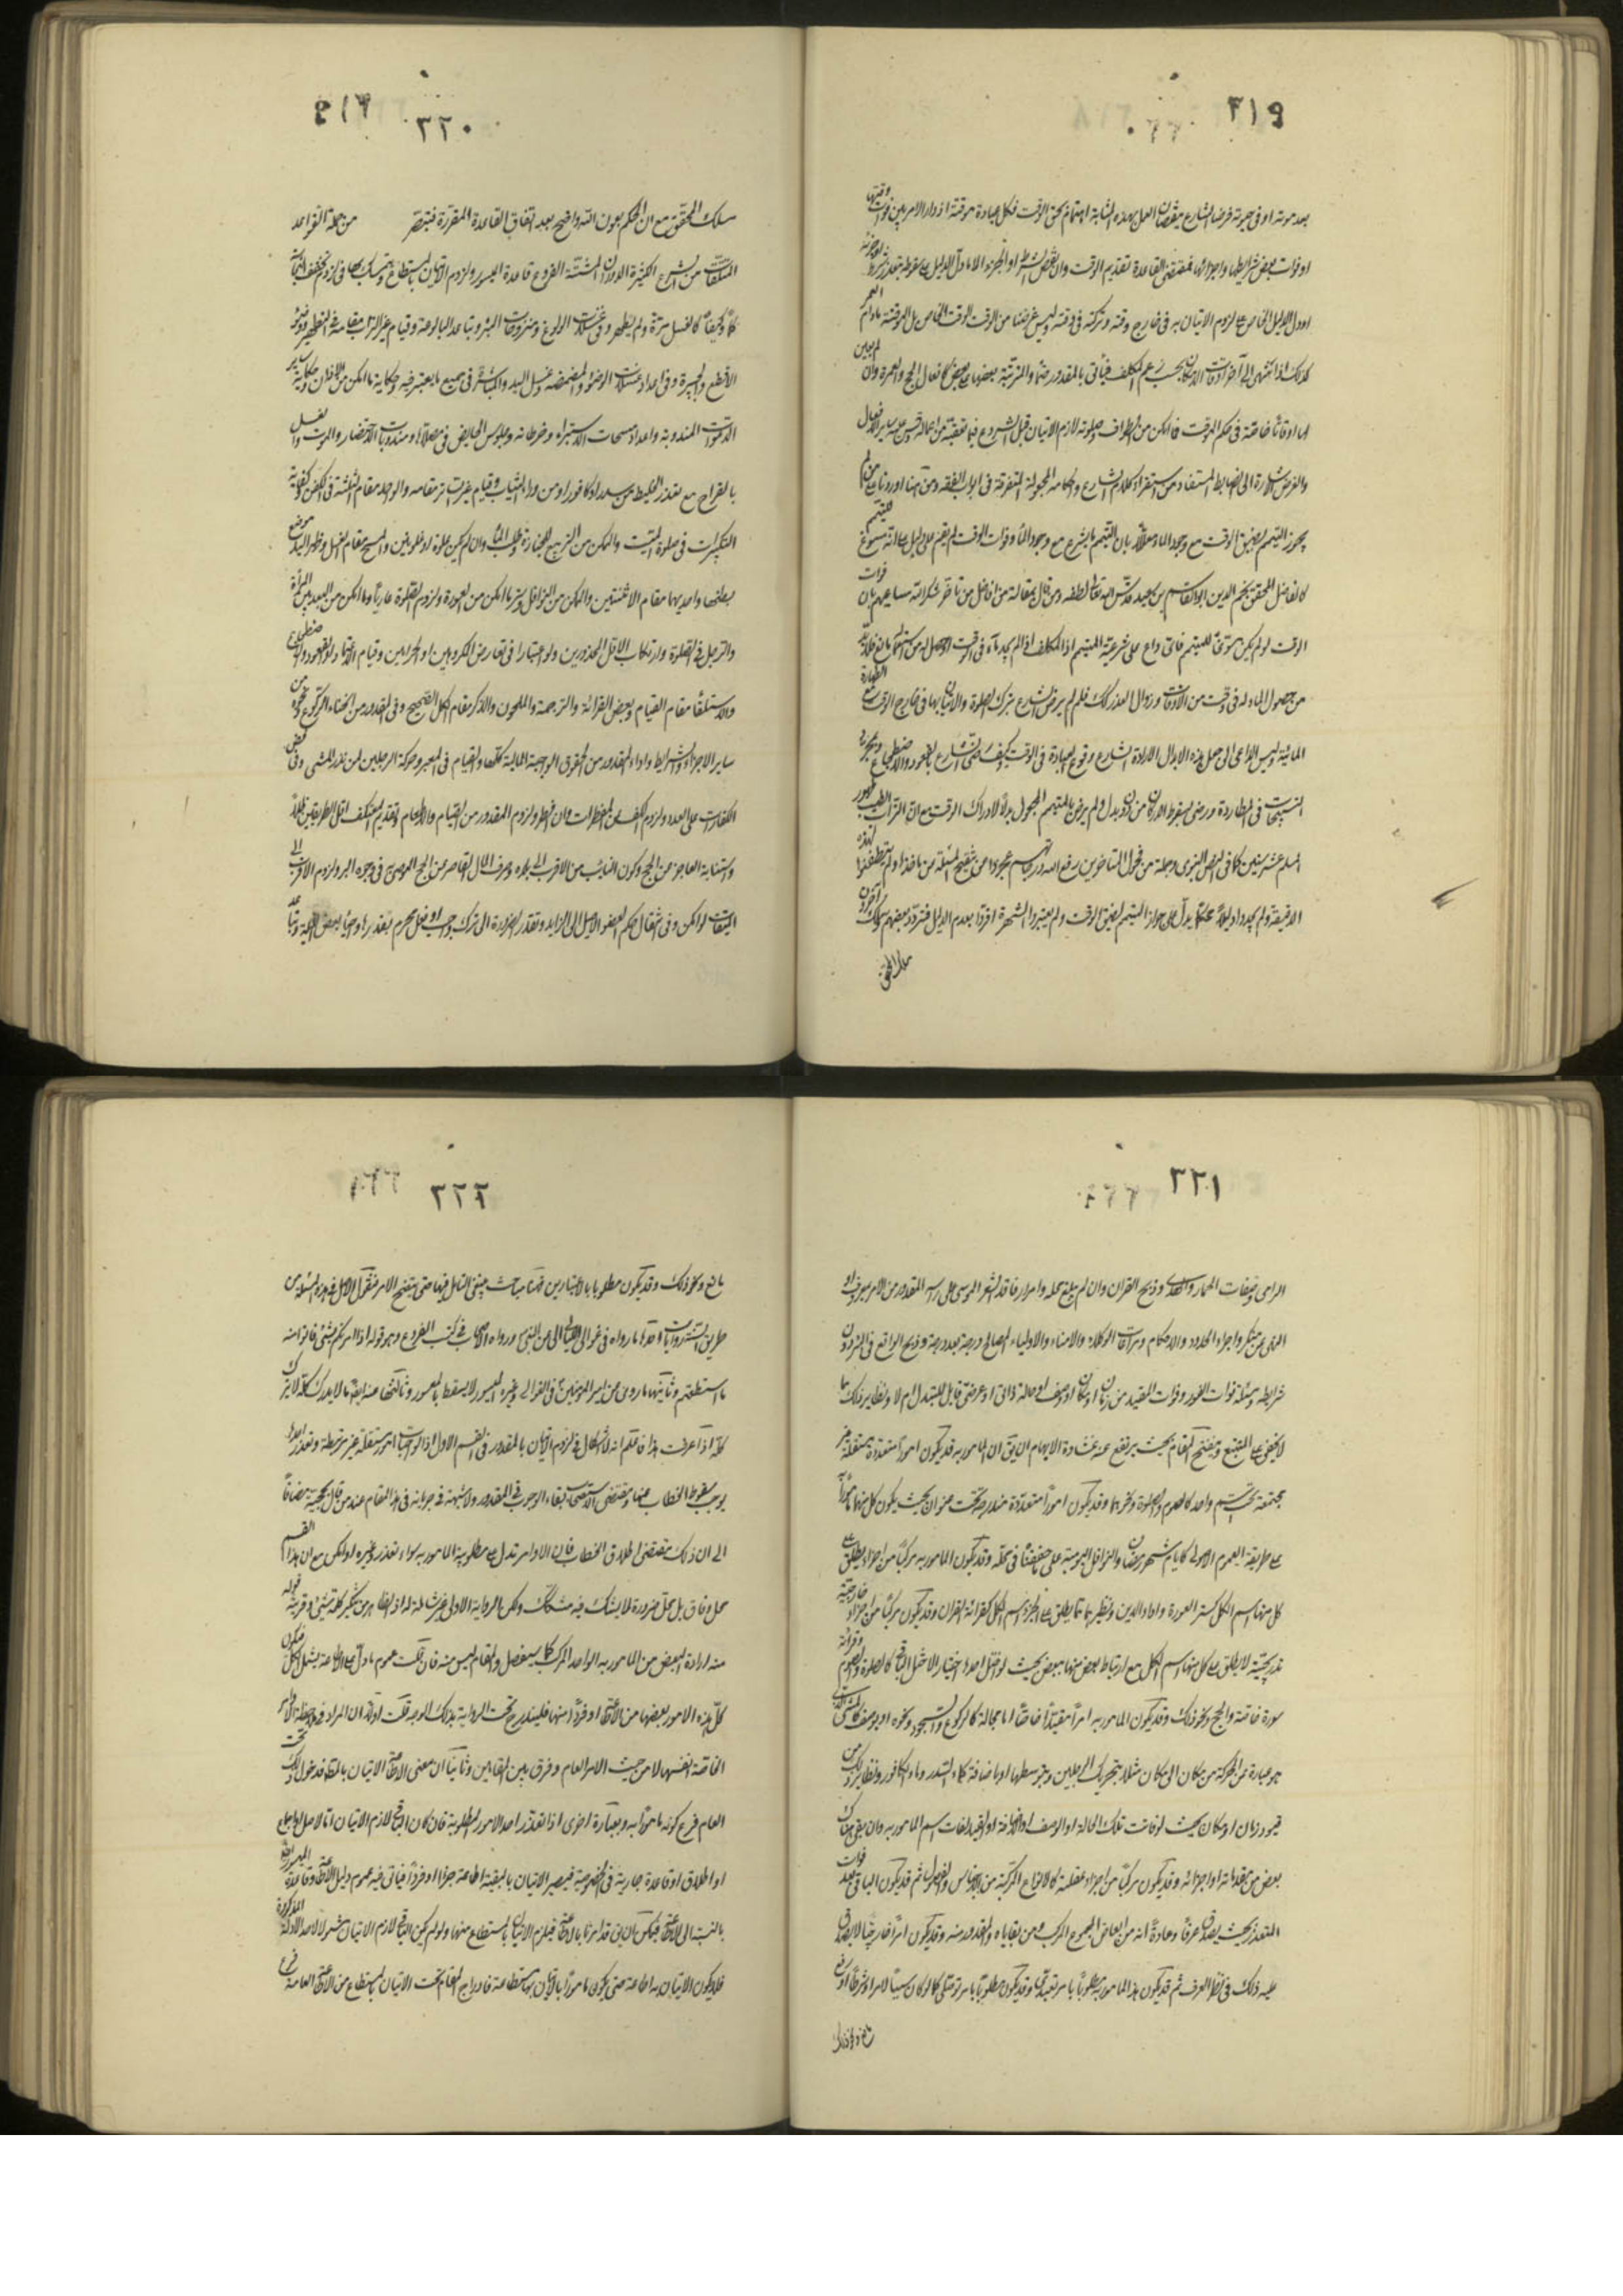 ٢١٩
بعد موته او فى حيوته فرضا الشارع مقتضى العمل بهذه الشابة اهتمام بحق الوقت فكل عبادة موقتة اذ دار الامر بين فوات وقتها
او فوات بعض شرايطها واجزائها فمقتضى القاعدة تقديم الوقت وان نقص الشرط او الجزء الا ما دل الدليل على سقوطه بتعذر شرطه او جزئه
او دل الدليل الخاص على لزوم الاتيان به فى خارج وقته وتركه فى وقته وليس غرضنا من الوقت الوقت الخاص بل الموقتة مادام العمر
كذلك اذا انتهى الى آخر اوقات الامكان بحسب زعم المكلف فيأتى بالمقدور منها والمترتبة بعضها على بعض كافعال الحج والعمرة وان لم يعين
لها اوقاتا خاصة فى حكم الموقت فما امكن من الطواف وصلوته لازم الاتيان قبل الشروع فيما يتعقبه من اعماله وقس عليه سائر الافعال
والغرض الاشارة الى الضابط المستفاد من استقراء كلام الشارع واحكامه المجعولة المتفرقة فى ابواب الفقه ومن هنا اورد تابع من لم
يجوز التيمم لضيق الوقت مع وجود الماء معللا بان التيمم لم يشرع مع وجود الماء وفوات الوقت لم يقم على دليل على انه مسوغ للتيمم
كالفاضل المحقق نجم الدين ابو القاسم بن سعيد قدس الله تعالى لطفه ومن قال بمقالته من افاضل من تاخر شكر الله مساعيهم بان فوات
الوقت لو لم يكن مسوغا للتيمم فاى داع على شرعية التيمم اذ المكلف اذا لم يجد ماء فى الوقت
من حصول الماء له فى وقت من الاوقات وزوال العذر كذلك فلم لم يرض الشارع بترك الصلوة والاتيان بها فى خارج الوقت مع الطهارة
المائية وليس الداعى الى جعل هذه الابدال الا ارادة الشارع وقوع العبادة فى الوقت كيف رضى الشارع بالقعود والاضطجاع وبمجرد
التسبيحات فى المطاردة ورضى بسقوط الاركان من دون بدل ولم يرض بالتيمم المجعول بدلا لادراك الوقت مع ان التراب طهور
المسلم عشر سنين كما فى النص النبوى وجملة من فحول المتاخرين رفع الله درجاتهم عجزوا عن تنقيح المسئلة من ماخذها ولم يتفطنوا لهذه
الدقيقة ولم يجدوا دليلا محكما يدل على جواز التيمم لضيق الوقت ولم يعتبروا الشهرة اقروا بعدم الدليل فتردد بعضهم وسلك آخرون
مسلك المحقق
٢٢٠
مسلك المحقق مع ان الحكم بعون الله واضح بعد اتقان القاعدة المقررة فتبصر من جملة القواعد
المتلقات من الشرع الكثيرة الدوران المتشتتة الفروع قاعدة الميسور ولزوم الاتيان بالمستطاع ويتمسك بها فى لزوم تخفيف النجاسة
كما وكيفا كالغسل مرة ولم يطهر وفى غسلات الولوغ ومنزوحات البئر وتباعد البالوعة وقيام غير التراب مقامه فى التطهير
الاقطع والجبيرة وفى اعداد غسلات الوضوء والمضمضة وغسل اليد والمباشرة فى جميع ما يعتبر فيه وحكاية ما امكن من الاذان وحكاية سائر
الدعوات المندوبة واعداد مسحات الاستبراء وخرطاته وجلوس الحايض فى مصلاها ومندوبات الاحتضار والموت والغسل
بالقراح مع تعذر الخليط من سدر او كافور او من وراء الثياب وقيام غير المئزر مقامه والواحد مقام الثلثة فى الكفن وكيفية
التكبيرات فى صلوة الميت والممكن من التربيع للجنازة وطلب الماء وان لم يكن غلوة او غلوتين والمسح مقام الغسل وظهر اليد موضع
بطنها واحديهما مقام الاثنتين والممكن من النوافل وستر ما امكن من العورة ولزوم الصلوة عاريا وما امكن من البعد بين المرأة
والرجل فى الصلوة وارتكاب الاقل المحذورين ولو اعتبارا فى تعارض المكروهين او الحرامين وقيام الاعتماد والقعود والاضطجاع
والاستلقاء مقام القيام وبعض القرائة والترجمة والملحون والذكر مقام الكل الصحيح وفى المقدور من انحناء الركوع ونحوه من
ساير الاجزاء والشرايط واداء المقدور من الحقوق الواجبة المالية كلها والقيام فى المعبر وحركة الرجلين لمن نذر المشى وفى بعض
الكفارات على العدد ولزوم الكف عن المفطرات وان افطر ولزوم المقدور من الصيام والاطعام وتقديم المعتكف اقل الطريقين ظلا
واستنابة العاجز عن الحج وكون النايب من الاقرب الى بلده وصرف المال القاصر عن الحج الموصى فى وجوه البر ولزوم الاقرب الى
الميقات لو امكن وفى انتقال حكم العضو الاصلى الى الزايد وتقدر الضرورة الى ترك واجب او فعل محرم بقدرها
٢٢١
الرامى وصفات الجمار والهدى وذبح القران وان لم يبلغ محله وامرار فاقد الشعر الموسى على راسه المقدور من الامر بمعروف او
النهى عن منكر واجراء الحدود والاحكام وتصرفات الوكلاء والامناء والاولياء المصالح درجة بعد درجة وذبح الواقع فى التردى
شرايطه ومسئلة فوات الفور وفوات القيد من زمان او مكان او وصف او حالة ذاتى او عرضى قابل للتبدل ام لا ونظاير ذلك مما
لا يخفى على المتتبع وتنقيح المقام بحيث يرتفع عنه غشاوة الابهام ان يق ان المامور به قد يكون امورا متعددة مستقلة غير
مجتمعة تحت اسم واحد كالصوم والصلوة ونحوهما وقد يكون امورا متعددة مندرجة تحت عنوان بحيث يكون كل منها مامورا به
على طريقة العموم الاصولى كايام شهر رمضان والنوافل اليومية على ما حققنا فى محله وقد يكون المامور به مركبا من اجزاء يطلق على
كل منها اسم الكل كستر العورة واداء الدين ونظيرهما مما يطلق على الجزء اسم الكل كقرائة القران وقد يكون مركبا من اجزاء خارجية
تدريجية لا يطلق على كل منها اسم الكل مع ارتباط بعض منها ببعض بحيث لو اختل احدها اختيارا لاختل الباقى كالصلوة والصوم وقرائة
سورة خاصة والحج ونحو ذلك وقد يكون المامور به امرا مقيدا خاصا اما بحالة كالركوع والسجود ونحوه او بوصف كالمشى الذى
هو عبارة عن الحركة من مكان الى مكان مثلا بتحريك الرجلين وبتوسطهما او باضافة كماء السدر وماء الكافور ونظاير ذلك من
قيود زمان او مكان بحيث لو فاتت تلك الحالة او الوصف او الاضافة او القيد لفات اسم المامور به وان بقى هناك
بعض من مقدماته او اجزائه وقد يكون مركبا من اجزاء عقلية كالانواع المركبة من الاجناس والفصول ثم قد يكون الباقى بعد فوات
المتعذر بحيث يصدق عرفا وعادة انه من ابعاض المجموع المركب ومن بقاياه والمقدور منه وقد يكون امرا خارجيا لا يصدق
عليه ذلك فى نظر العرف ثم قد يكون هذا المامور به مطلوبا بامر تعبدى وقد يكون مطلوبا بامر توصلى كما لو كان سببا لامر او شرطا او رفع
مانع ونحو ذلك
٢٢٢
مانع ونحو ذلك وقد يكون مطلوبا بالاعتبارين فهنا مباحث ينبغى التامل فيها حتى يتضح الامر فنقول الاصل فى هذه المسئلة من
طريق السنة روايات احدها ما رواه فى غوالى اللئالى عن النبى ورواه الاصحاب فى كتب الفروع وهو قوله اذا امرتكم بشئ فاتوا منه
ما استطعتم وثانيتها ما روى عن امير المؤمنين فى الغوالى وغيره الميسور لا يسقط بالمعسور وثالثتها عنه ايضا ما لا يدرك كله لا يترك
كله اذا عرفت هذا فاعلم انه لا اشكال فى لزوم الاتيان بالمقدور فى القسم الاول اذ الواجبات امور مستقلة غير مرتبطة وتعذر احدها
يوجب سقوط الخطاب عنها ومقتضى الاستصحاب بقاء الوجوب فى المقدور ولا شبهة فى جريانه فى هذا المقام عند من قال بحجيته مضافا
الى ان ذلك مقتضى اطلاق الخطاب فان الاوامر تدل على مطلوبية المامور به سواء تعذر غيره او امكن مع ان هذا القسم
محل وفاق بل محل ضرورة لا يشك فيه مشكك ولكن الرواية الاولى غير شاملة له اذ الظاهر من تنكير كلمة شئ وقرينة قوله
منه ارادة البعض من المامور به الواحد المركب كما سيفصل والمقام ليس منه فان قلت عموم ما دل على الاطاعة يشمل الكل فيكون
كل هذه الامور بعضها من الاطاعة او فردا منها فليندرج تحت الرواية بذلك الوجه قلت اولا ان المراد فى الرواية الاوامر
الخاصة انفسها لا من حيث الامر العام وفرق بين المقامين وثانيا ان معنى الاطاعة الاتيان بالمطلوب فدخول ذلك تحت
العام فرع كونه مامورا به وبعبارة اخرى اذا تعذر احد الامور المطلوبة فان كان الباقى لازم الاتيان اما لاصل او اجماع
او اطلاق او قاعدة جارية فى الخصوصية فيصير الاتيان بالبقية اطاعة جزءا او فردا فياتى فيه عموم دليل الاطاعة وقاعدة الميسور
بالنسبة الى الاطاعة فيمكن ان يق قد امرنا بالاطاعة فيلزم الاتيان بالمستطاع منها ولو لم يكن الباقى لازم الاتيان بشمول احد الادلة المذكورة
فلا يكون الاتيان به اطاعة حتى يكون مامورا بالاتيان بها استطاعة فادراج المقام تحت الاتيان بالمستطاع من الاطاعة العامة